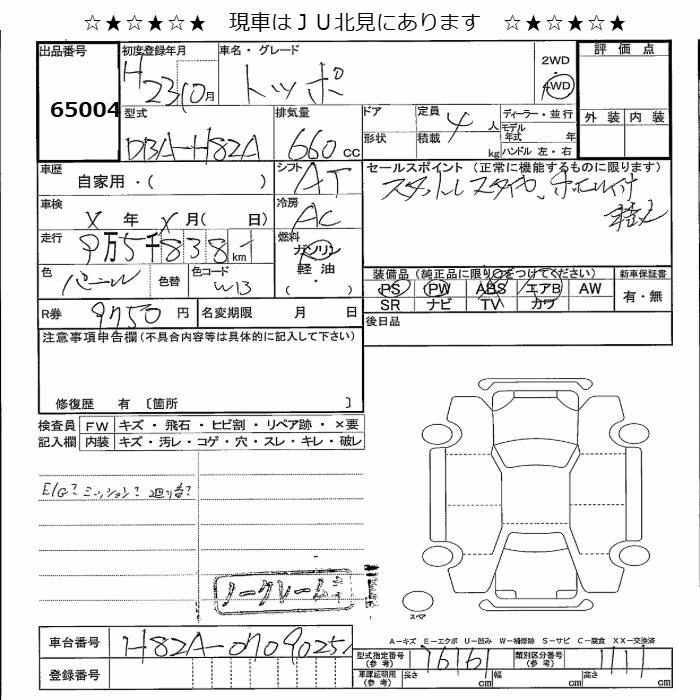 ☆★☆★☆★ 現車はＪＵ北見にあります ☆★☆★☆★
出品番号
65004
初度登録年月
H23 10月
車名・グレード
トッポ
2WD
・
4WD
評価点
外装 内装
型式
DBA-H82A
排気量
660cc
ドア
形状
定員 4人
積載 kg
ディーラー・並行
モデル年式 年
ハンドル 左・右
車歴
自家用・( )
シフト
AT
セールスポイント (正常に機能するものに限ります)
スタットレスタイヤ、
車検
X年 X月( 日)
冷房
AC
走行
9万5千838km
燃料
ガソリン
軽油
( ・ )
色
パール
色替
色コード
W13
装備品(純正品に限り○をつけてください)
PS PW ABS エアB AW
SR ナビ TV カワ
新車保証書
有・無
R券 9750円
名変期限 月 日
後日品
注意事項申告欄(不具合内容等は具体的に記入して下さい)
修復歴 有 〔箇所 〕
検査員記入欄
FW キズ・飛石・ヒビ割・リペア跡・×要
内装 キズ・汚レ・コゲ・穴・スレ・キレ・破レ
E/G? ミッション?
ノークレーム
スペア
A－キズ E－エクボ U－凹み W－補修跡 S－サビ C－腐食 XX－交換済
車台番号
H82A-0709025
登録番号
型式指定番号(参考) 16161
類別区分番号(参考) 1111
車庫証明用(参考) 長さ cm 幅 cm 高さ cm